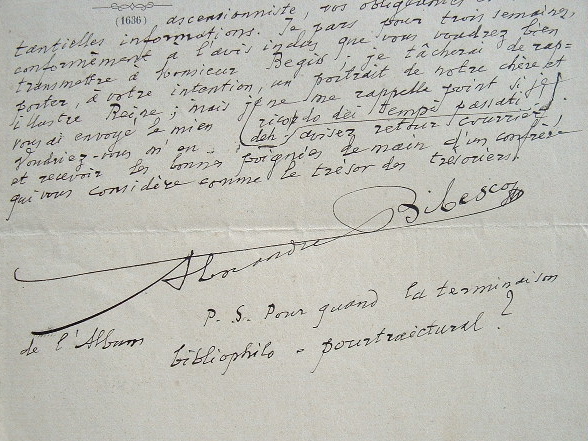 (1636)
ascensionniste, vos obligeantes et
tantielles informations. Je pars pour trois semaines,
conformément à l'avis inclus que vous voudrez bien
transmettre à Monsieur Begis; je tâcherai de rap-
porter, à votre intention, un portrait de notre chère et
illustre Reine; mais je ne me rappelle point si je
vous ai envoyé le mien (ricordo dei tempi passati)
Voudriez-vous m'en deh; avisez retour courrier
et recevoir les bonnes poignées de main d'un confrère
qui vous considère comme le trésor des trésoriers.
Alexandre Bibesco
P. S. Pour quand la terminaison
de l'Album bibliophilo-pourtraictural?